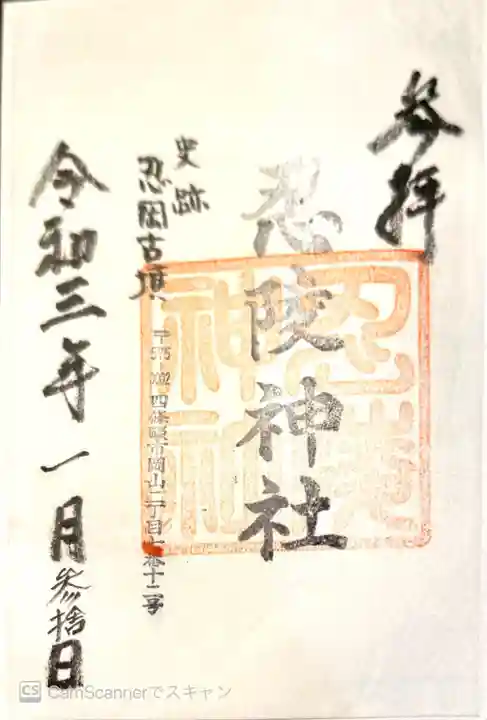 参拝
忍陵神社
史跡
忍岡古墳
〒575-0002 四條畷市岡山二丁目七番十二号
令和三年一月参拾日
CS CamScannerでスキャン